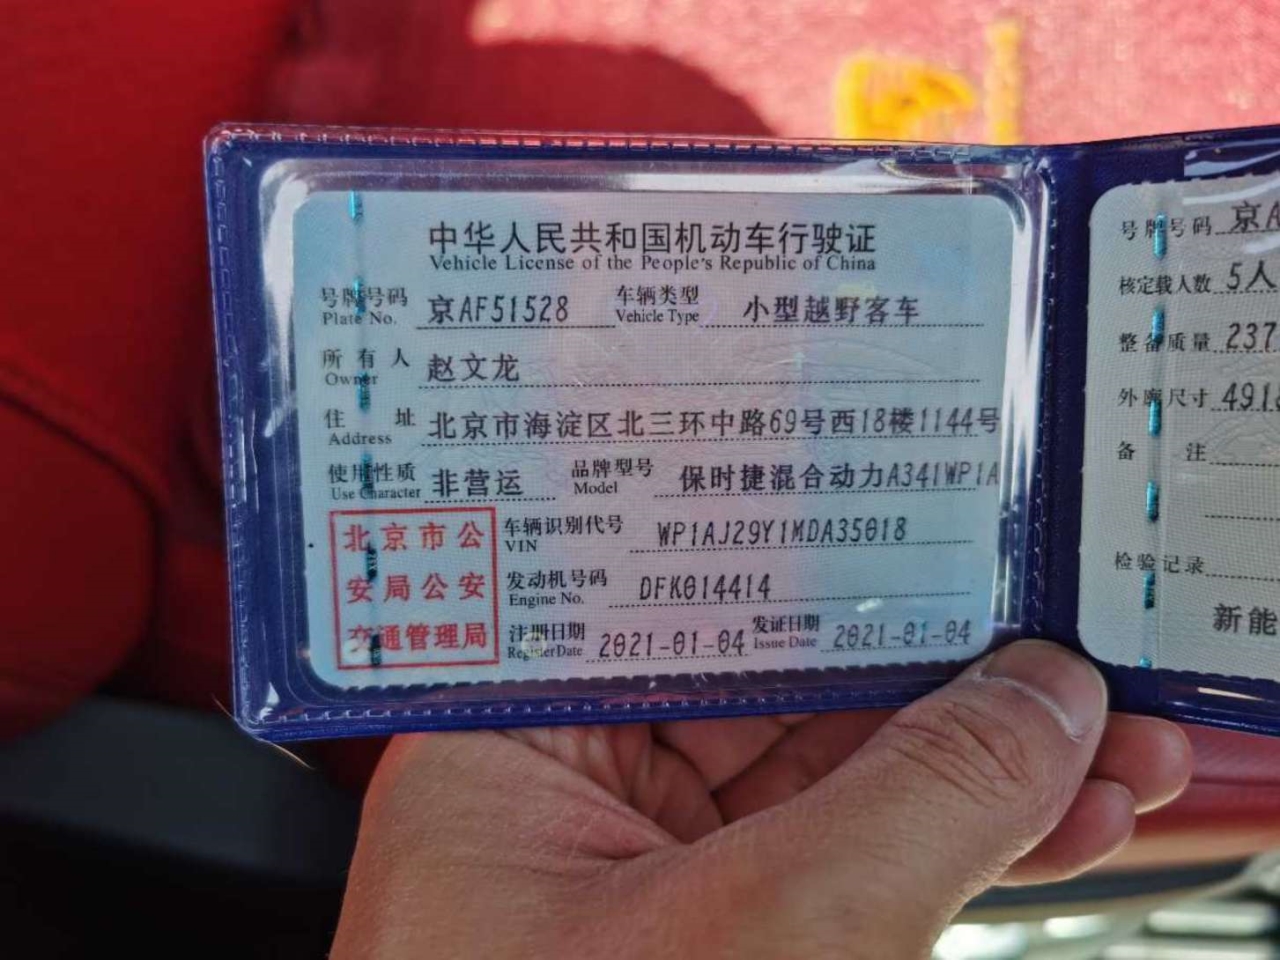 中华人民共和国机动车行驶证
Vehicle License of the People's Republic of China
号牌号码 京AF51528 车辆类型 小型越野客车
Plate No. Vehicle Type
所有人 赵文龙
Owner
住址 北京市海淀区北三环中路69号西18楼1144号
Address
使用性质 非营运 品牌型号 保时捷混合动力A341WP1A
Use Character Model
北京市公
安局公安
交通管理局
车辆识别代号 WP1AJ29Y1MDA35018
VIN
发动机号码 DFK014414
Engine No.
注册日期 2021-01-04 发证日期 2021-01-04
Register Date Issue Date
号牌号码 京A
核定载人数 5人
整备质量 237
外廓尺寸 491
备注
检验记录
新能